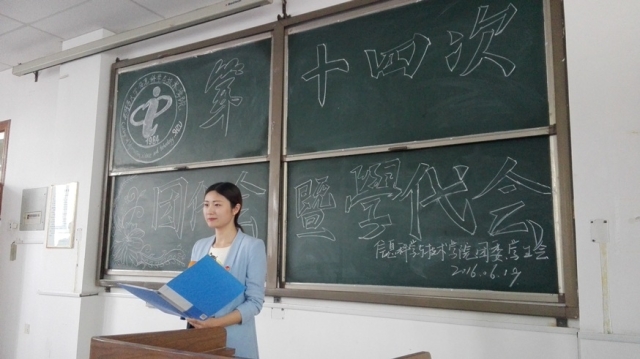 第十四次
团代会暨學代会
信息科学与技术学院团委、学生会
2016.06.19
1984